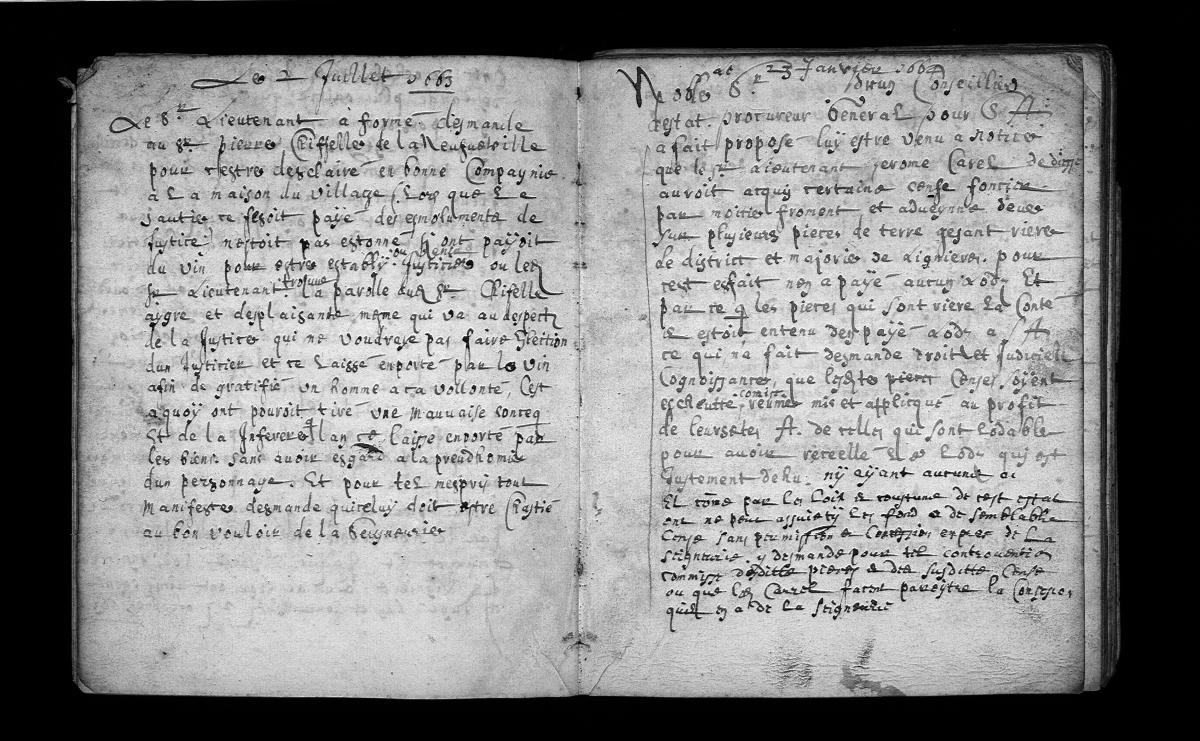 Le 2 Juillet 1663
Le Sr Lieutenant a formé desmande
au Sr pierre Chiffelle de la Neufueville
pour cestre desclairé en bonne Compaynie
a La maison du village (Lors que Le
jautie ce fesoit payé des esmolumente de
Justice) nestoit pas estonné sy ont payoit
ou Rente
du vin pour estre establÿ Justicier ou les
Sr Lieutenant trosuue la parolle dud Sr Chifelle
aygre et desplaisante, mesme qui va au despect
de la Justice qui ne voudroye pas faire Eslection
dun Justicier et ce laissé enporté par le vin
afin de gratifié un homme a ca vollonté, Cest
aquoÿ ont pouroit tiré une mauvaise conceq
Et de la Inferer lan ce laisse enporté par
les biens sans auoir esgard a la preudhomie
dun personnage. Et pour tel mespry tout
manifeste desmande quiceluy doit estre Chastié
au bon vouloir de la Seigneurie
ac 23 Janvier 1664
Noble Sr Brun Conseillier
destat procureur General pour S A
a fait propose luÿ estre venu a notice
que le Sr Lieutenant Jerome Carel de diesse
auroit acquy certaine cense fonciere
par moitie froment et adveynne deue
sur plusieurs pieces de terre gesant riere
le district et majorie de Lignieres pour
cest esfait nen a payé aucun Lods Et
par ce q les pieces qui sont riere La Conté
il estoit entenu des payé Lods a S A
ce qui na fait desmande droit et Judiciell
Cognoissance, que lesdte pieces Censes soÿent
comise
escheutte, reume mis et applicqué au profit
de leursdtes A. de celles qui sont Lodable
pour auoir recellé Le Lods quj est
Justement dehu. nÿ aÿant aucune
Et cōme par les Loix & coustume de cest estat
ont ne peut assuietÿ les fond a de semblable
Cense sans permission & Concession expres de La
Seigneurie, y desmande pour tel controuention
commise desditte pieces & des susditte Cense
ou que led Carrel facent pareÿtre la Concession
quil en a de La Seigneurie